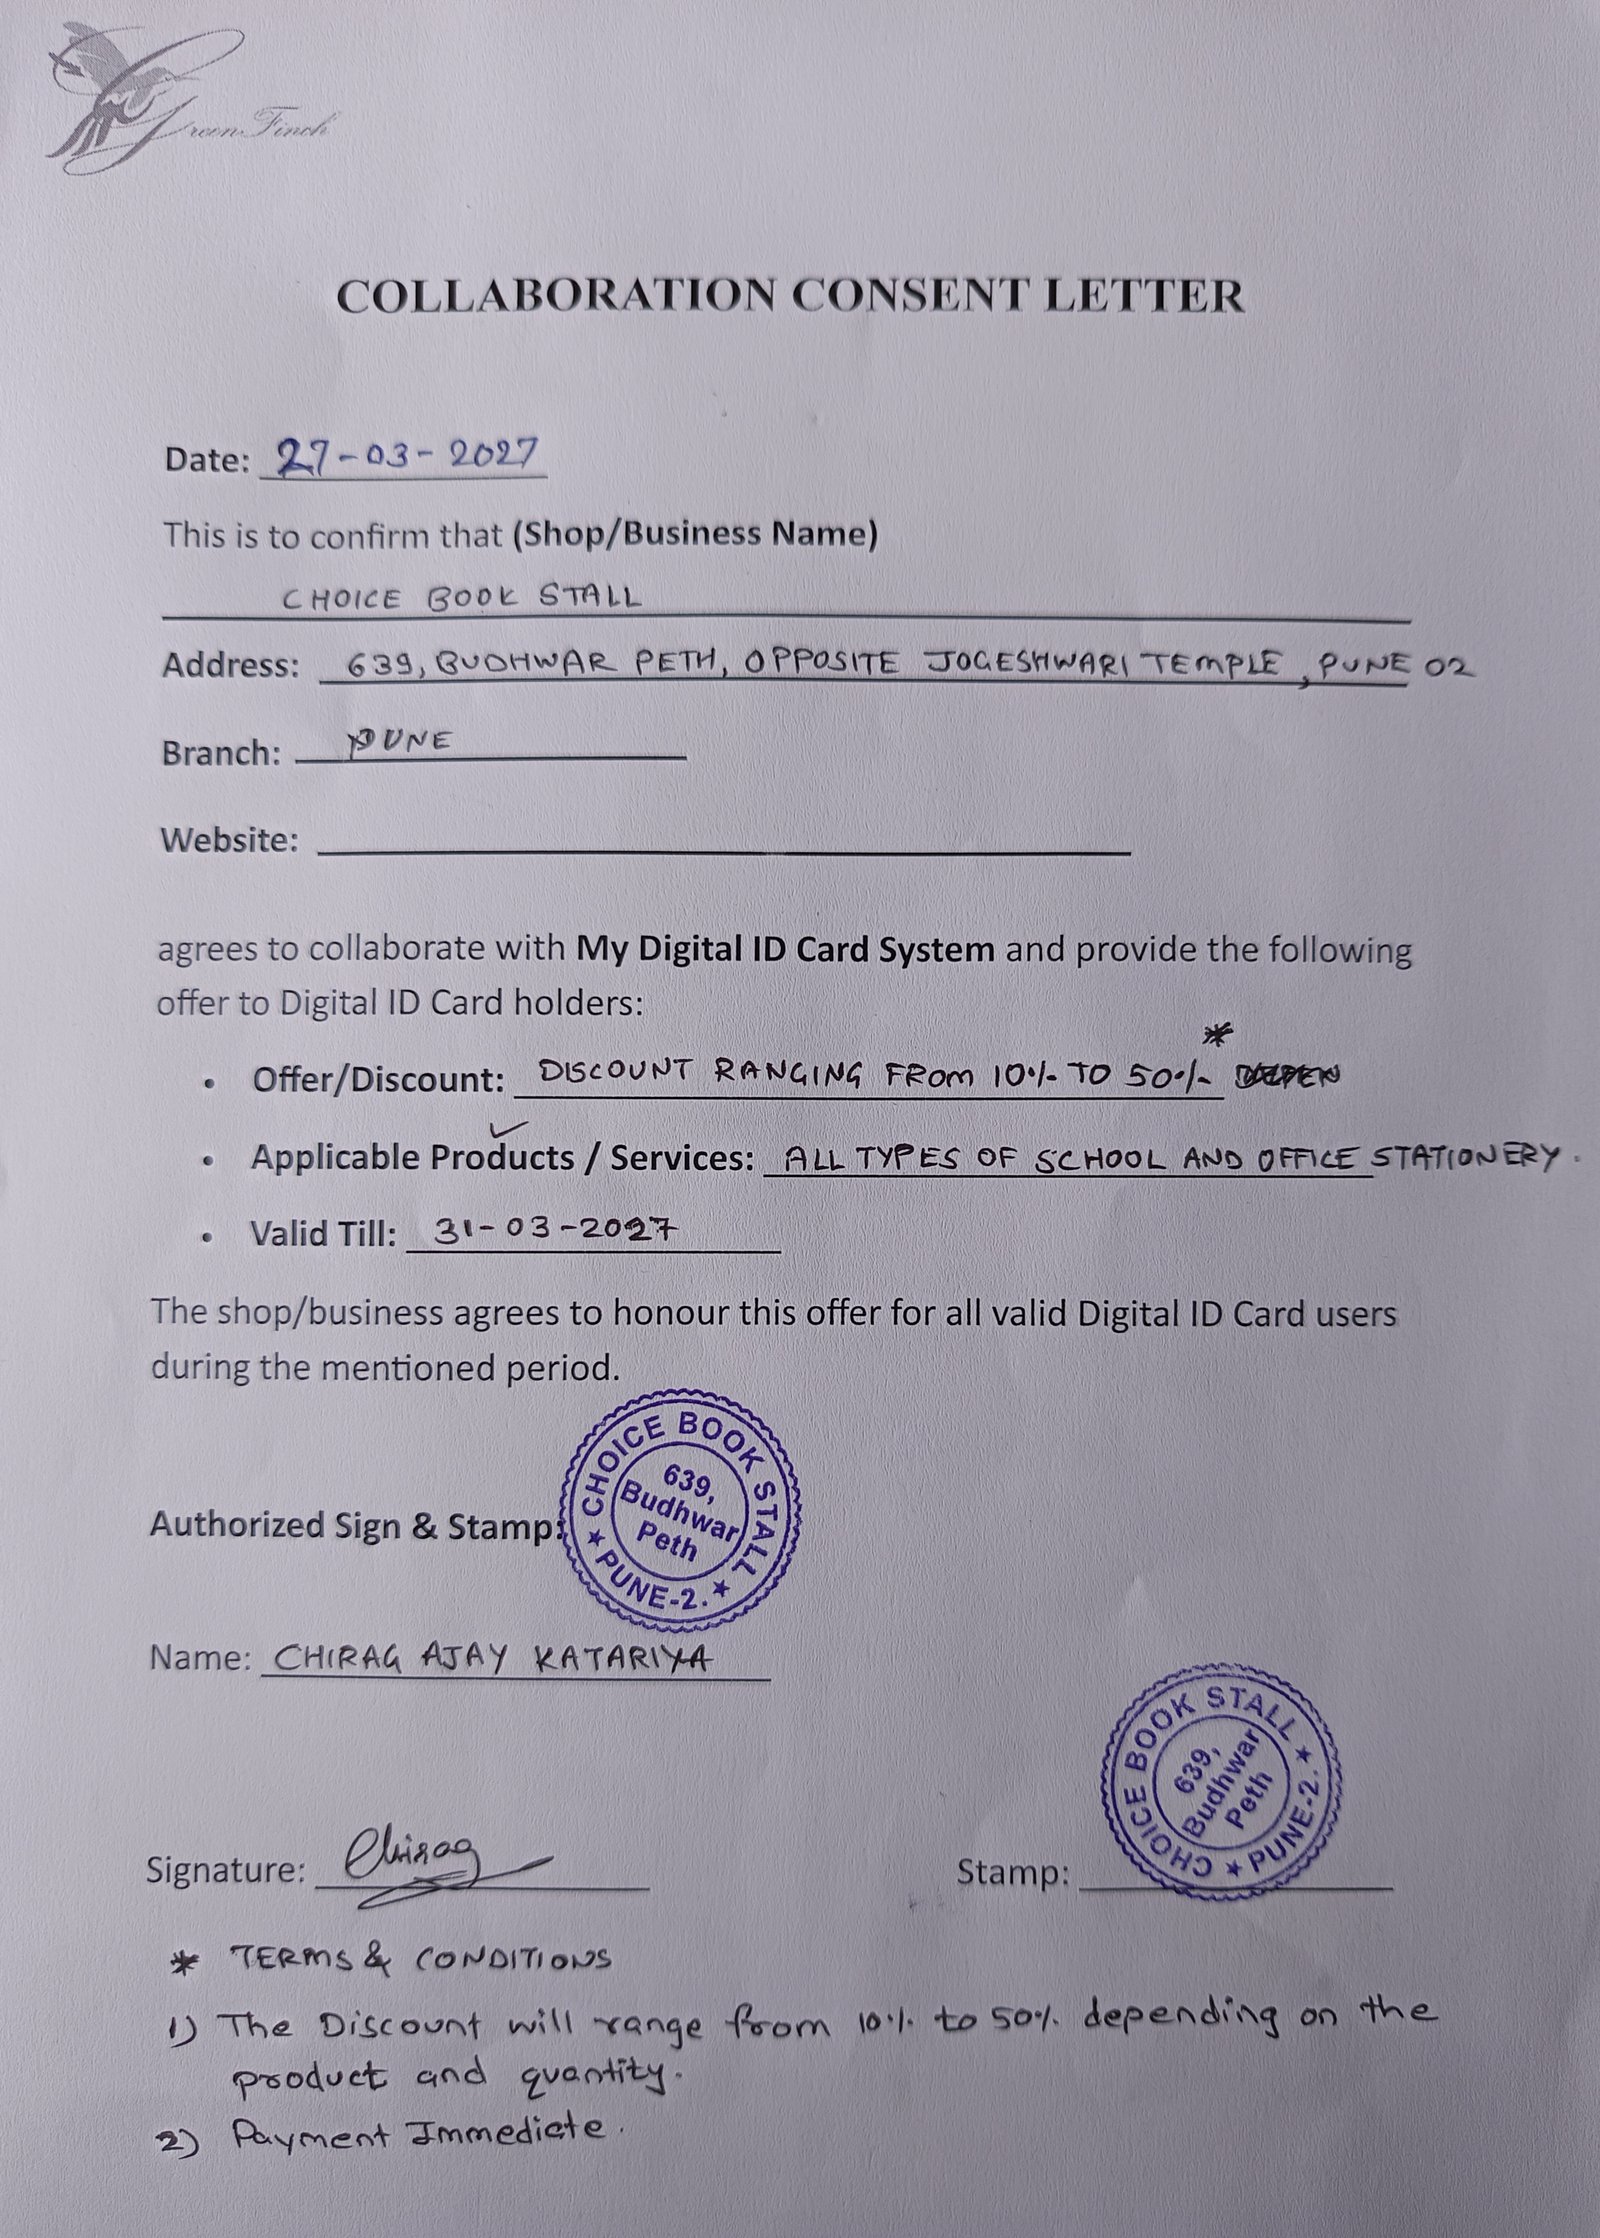 Green Finch
COLLABORATION CONSENT LETTER
Date: 27-03-2027
This is to confirm that (Shop/Business Name)
CHOICE BOOK STALL
Address: 639, BUDHWAR PETH, OPPOSITE JOGESHWARI TEMPLE, PUNE 02
Branch: PUNE
Website:
agrees to collaborate with My Digital ID Card System and provide the following
offer to Digital ID Card holders:
• Offer/Discount: DISCOUNT RANGING FROM 10% TO 50%*
• Applicable Products / Services: ALL TYPES OF SCHOOL AND OFFICE STATIONERY.
• Valid Till: 31-03-2027
The shop/business agrees to honour this offer for all valid Digital ID Card users
during the mentioned period.
Authorized Sign & Stamp:
CHOICE BOOK STALL
★ PUNE-2. ★
639,
Budhwar
Peth
Name: CHIRAG AJAY KATARIYA
Signature: Chirag
Stamp:
CHOICE BOOK STALL
★ PUNE-2. ★
639,
Budhwar
Peth
* TERMS & CONDITIONS
1) The Discount will range from 10% to 50% depending on the
product and quantity.
2) Payment Immediate.